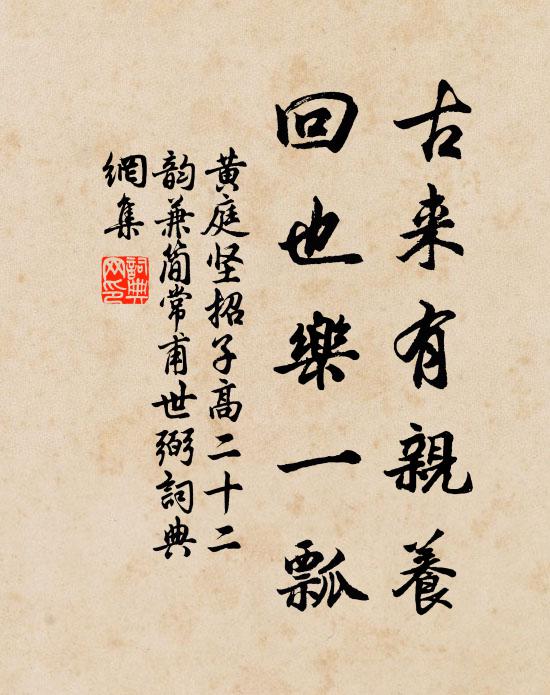 古来有親養
回也樂一瓢
黄庭坚招子高二十二
韵兼简常甫世弼詞典
網集
詞典
网印